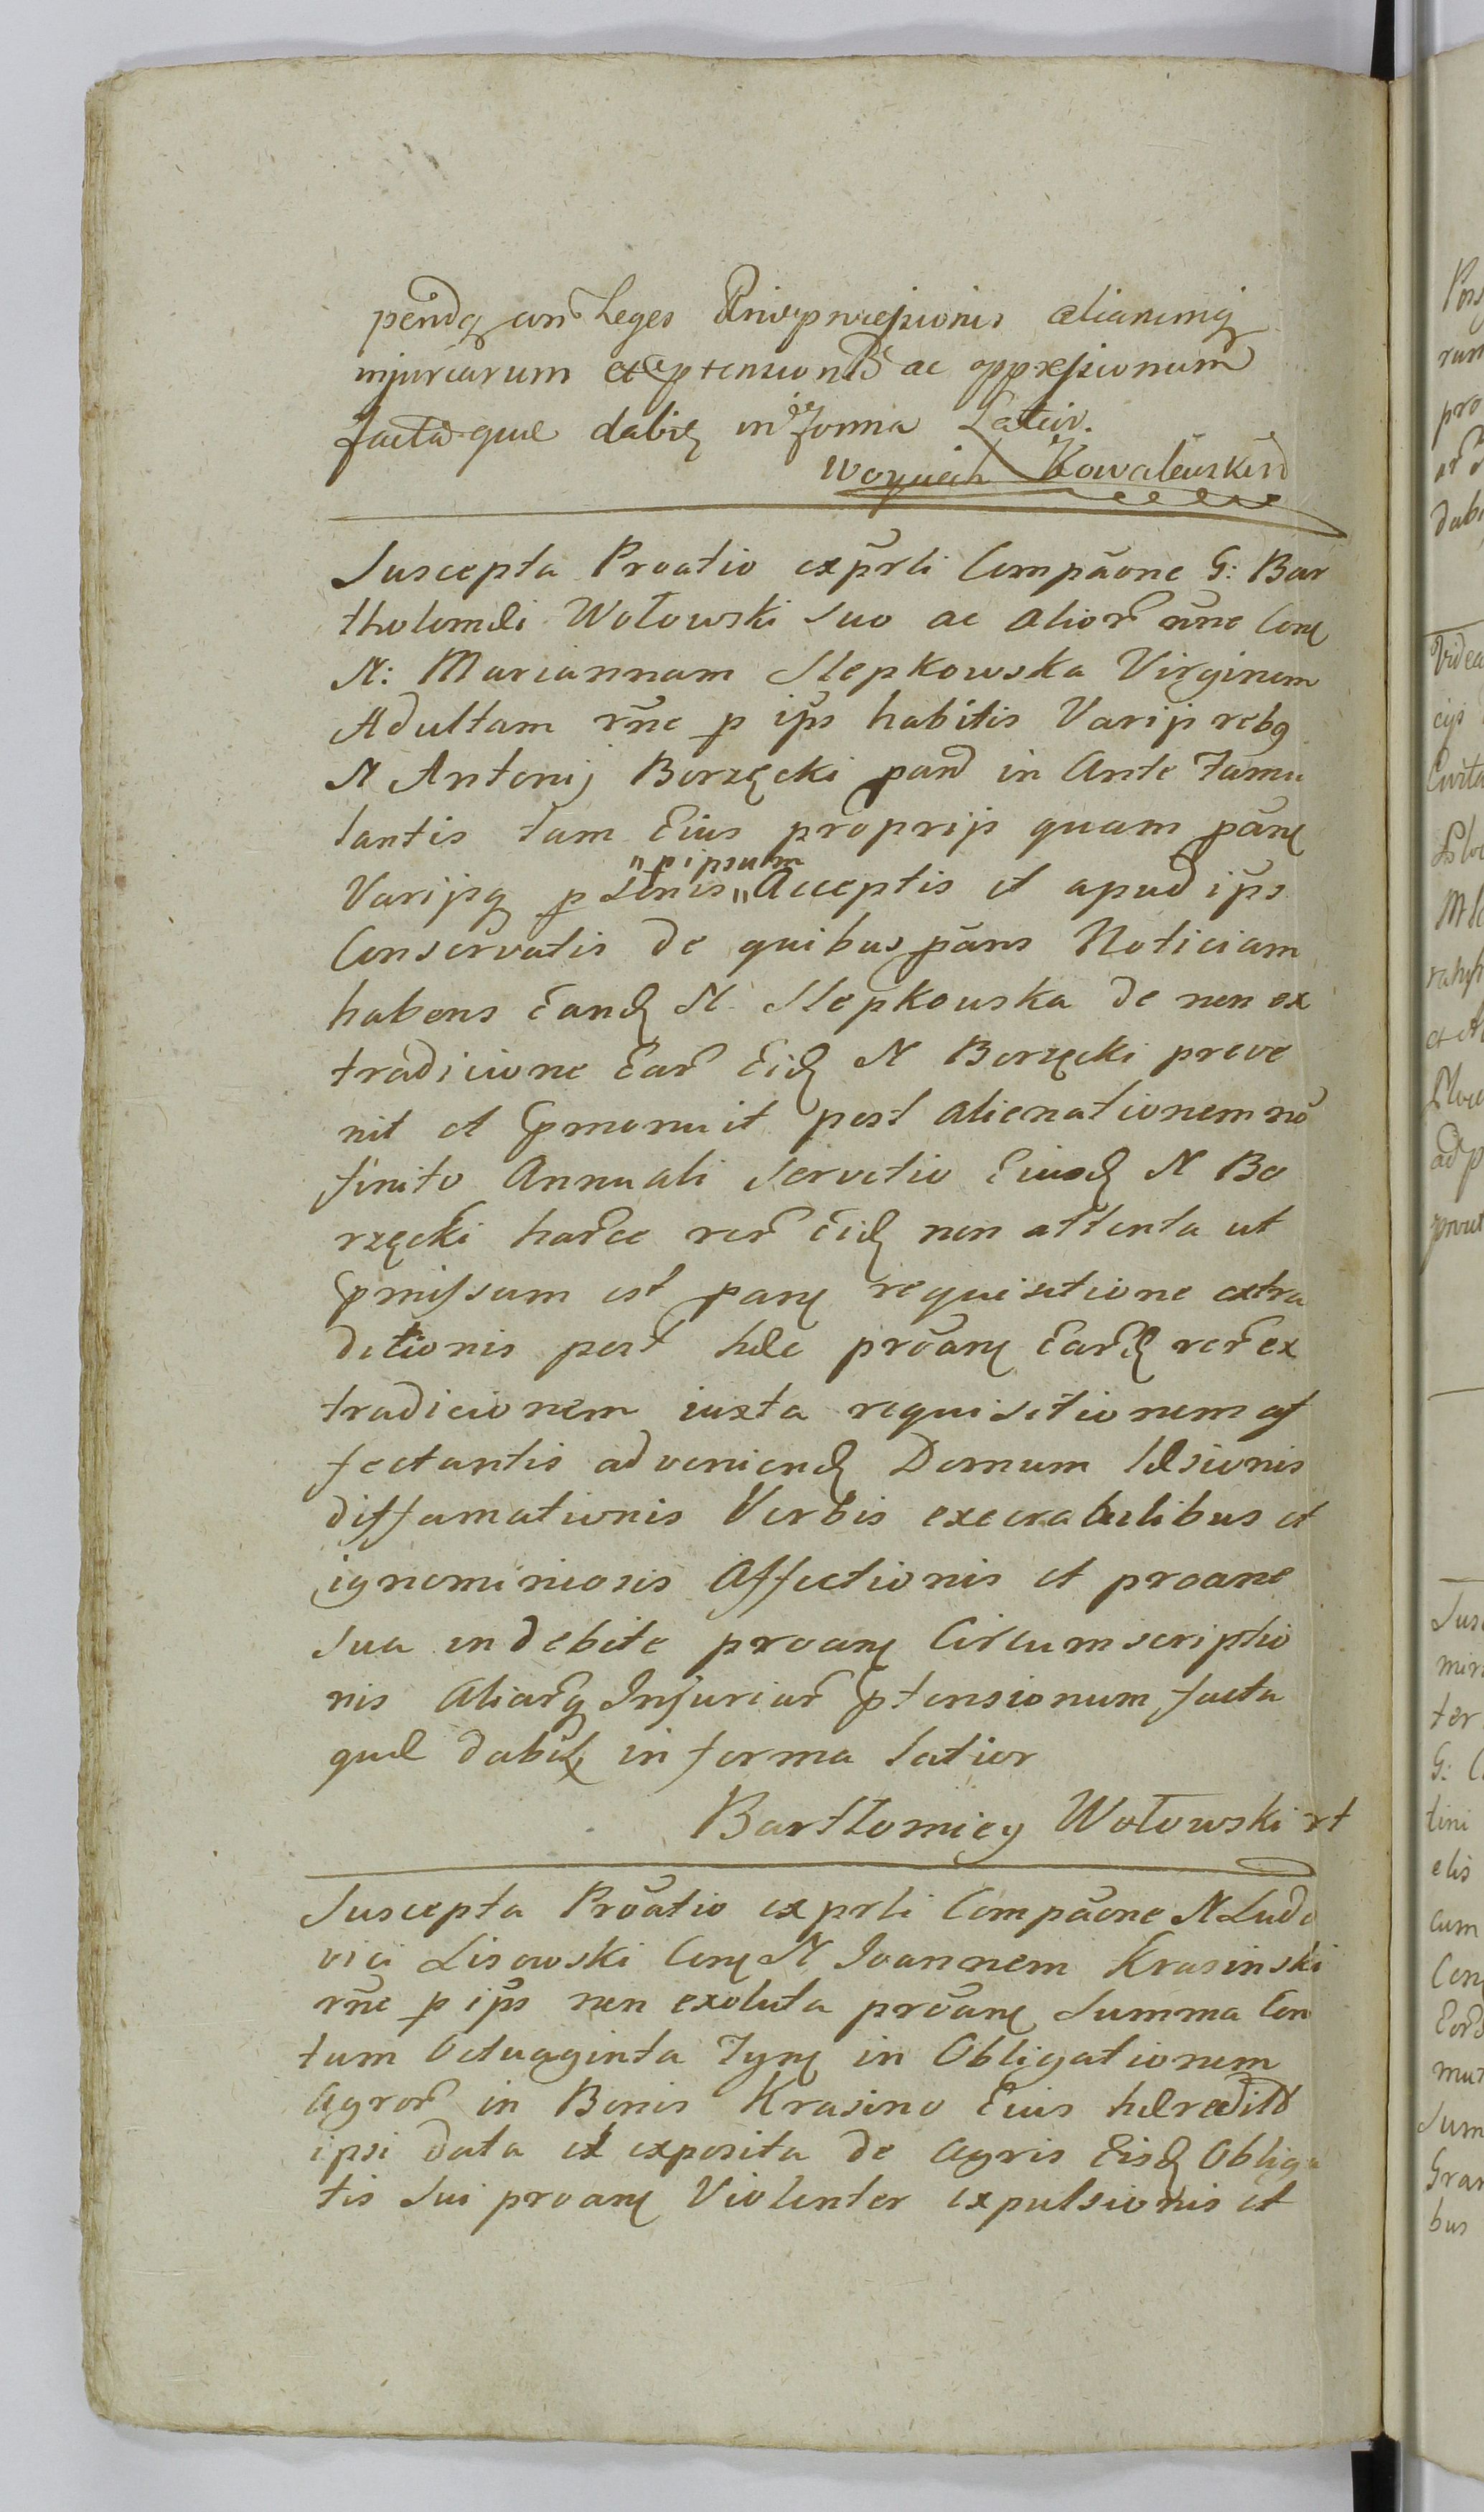 pendą con Leges aliarumq
injuriarum et ptensionis ac oppressionum
facta quæ dabit in forma Latior.
Woyciech Kowalewski
Suscepta Protatio exprli Compãone G: Bar
tholomæi Wołowski suo ac alior̃ nõne Con
N: Mariannam Slepkowska Virginem
Adultam rñe p ips habitis Varijs rebq
N Antonij Borzęcki pand in Ante famu
lantis tam Eius proprijs quam pãn
Varijsq p Senis "p ipsum" Acceptis et apud ips
Conservatis de quibus pãns Noticiam
habens eand N Slepkowska de non ex
tradicione Ear̃ Eid N Borzęcki preve
nit et pmonuit post alienationem nõ
finito Annuali servitio Eiusd N Bo
rzęcki har̃ce rer̃ eid non attenta ut
pmissum est pane requisitione extra
ditionis post hæc proãne Ear̃d rer̃ ex
tradicionem iuxta requisitionem af
fectantis ad veniend Domum læsionis
diffamationis Verbis execrabilibus et
ignominiosis Affectionis et proane
sua indebite proane Circumscriptio
nis Aliar̃q Injuriar̃ ptensionum facta
quæ dabit in forma latior
Bartłomiey Wołowski rt
Suscepta Protatio exprli Compãone N Ludo
vici Lisowski Con N Joannem Krasinski
rñe p ips non exoluta proãne Summa Cen
tum Octuaginta Tyn in Obligationem
Agror̃ in Bonis Krasino Eius hæredit
ipsi data et exposita de Agris Eisd Obliga
tis sui proane Violenter expulsionis et